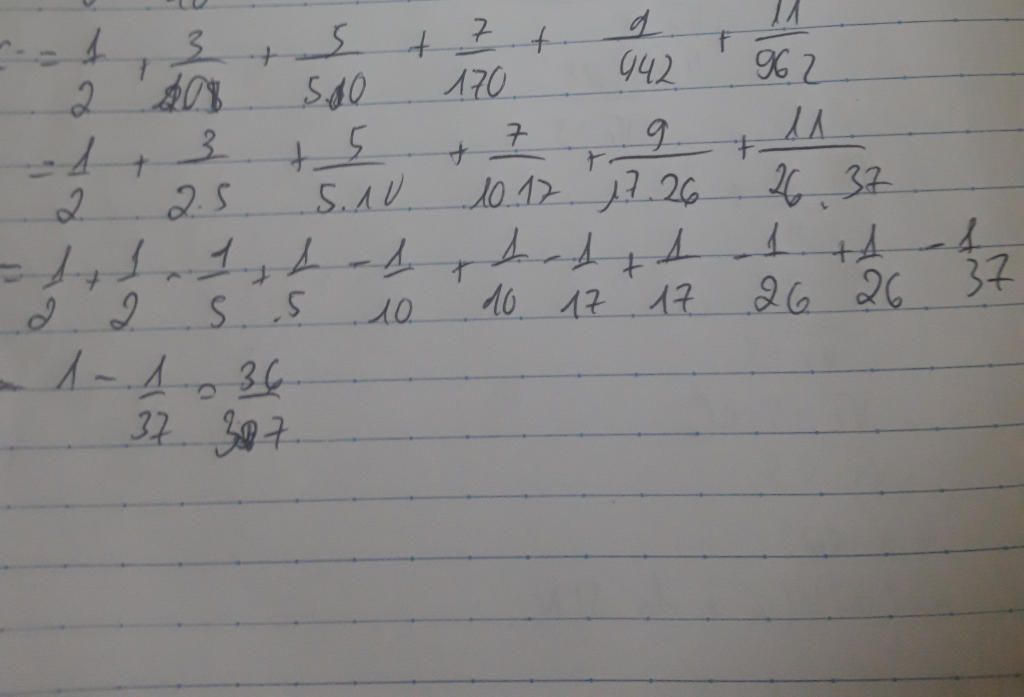 = 1/2 + 3/10 + 5/5.10 + 7/170 + 9/442 + 11/962
= 1/2 + 3/2.5 + 5/5.10 + 7/10.17 + 9/17.26 + 11/26.37
= 1/2 + 1/2 - 1/5 + 1/5 - 1/10 + 1/10 - 1/17 + 1/17 - 1/26 + 1/26 - 1/37
= 1 - 1/37 = 36/37